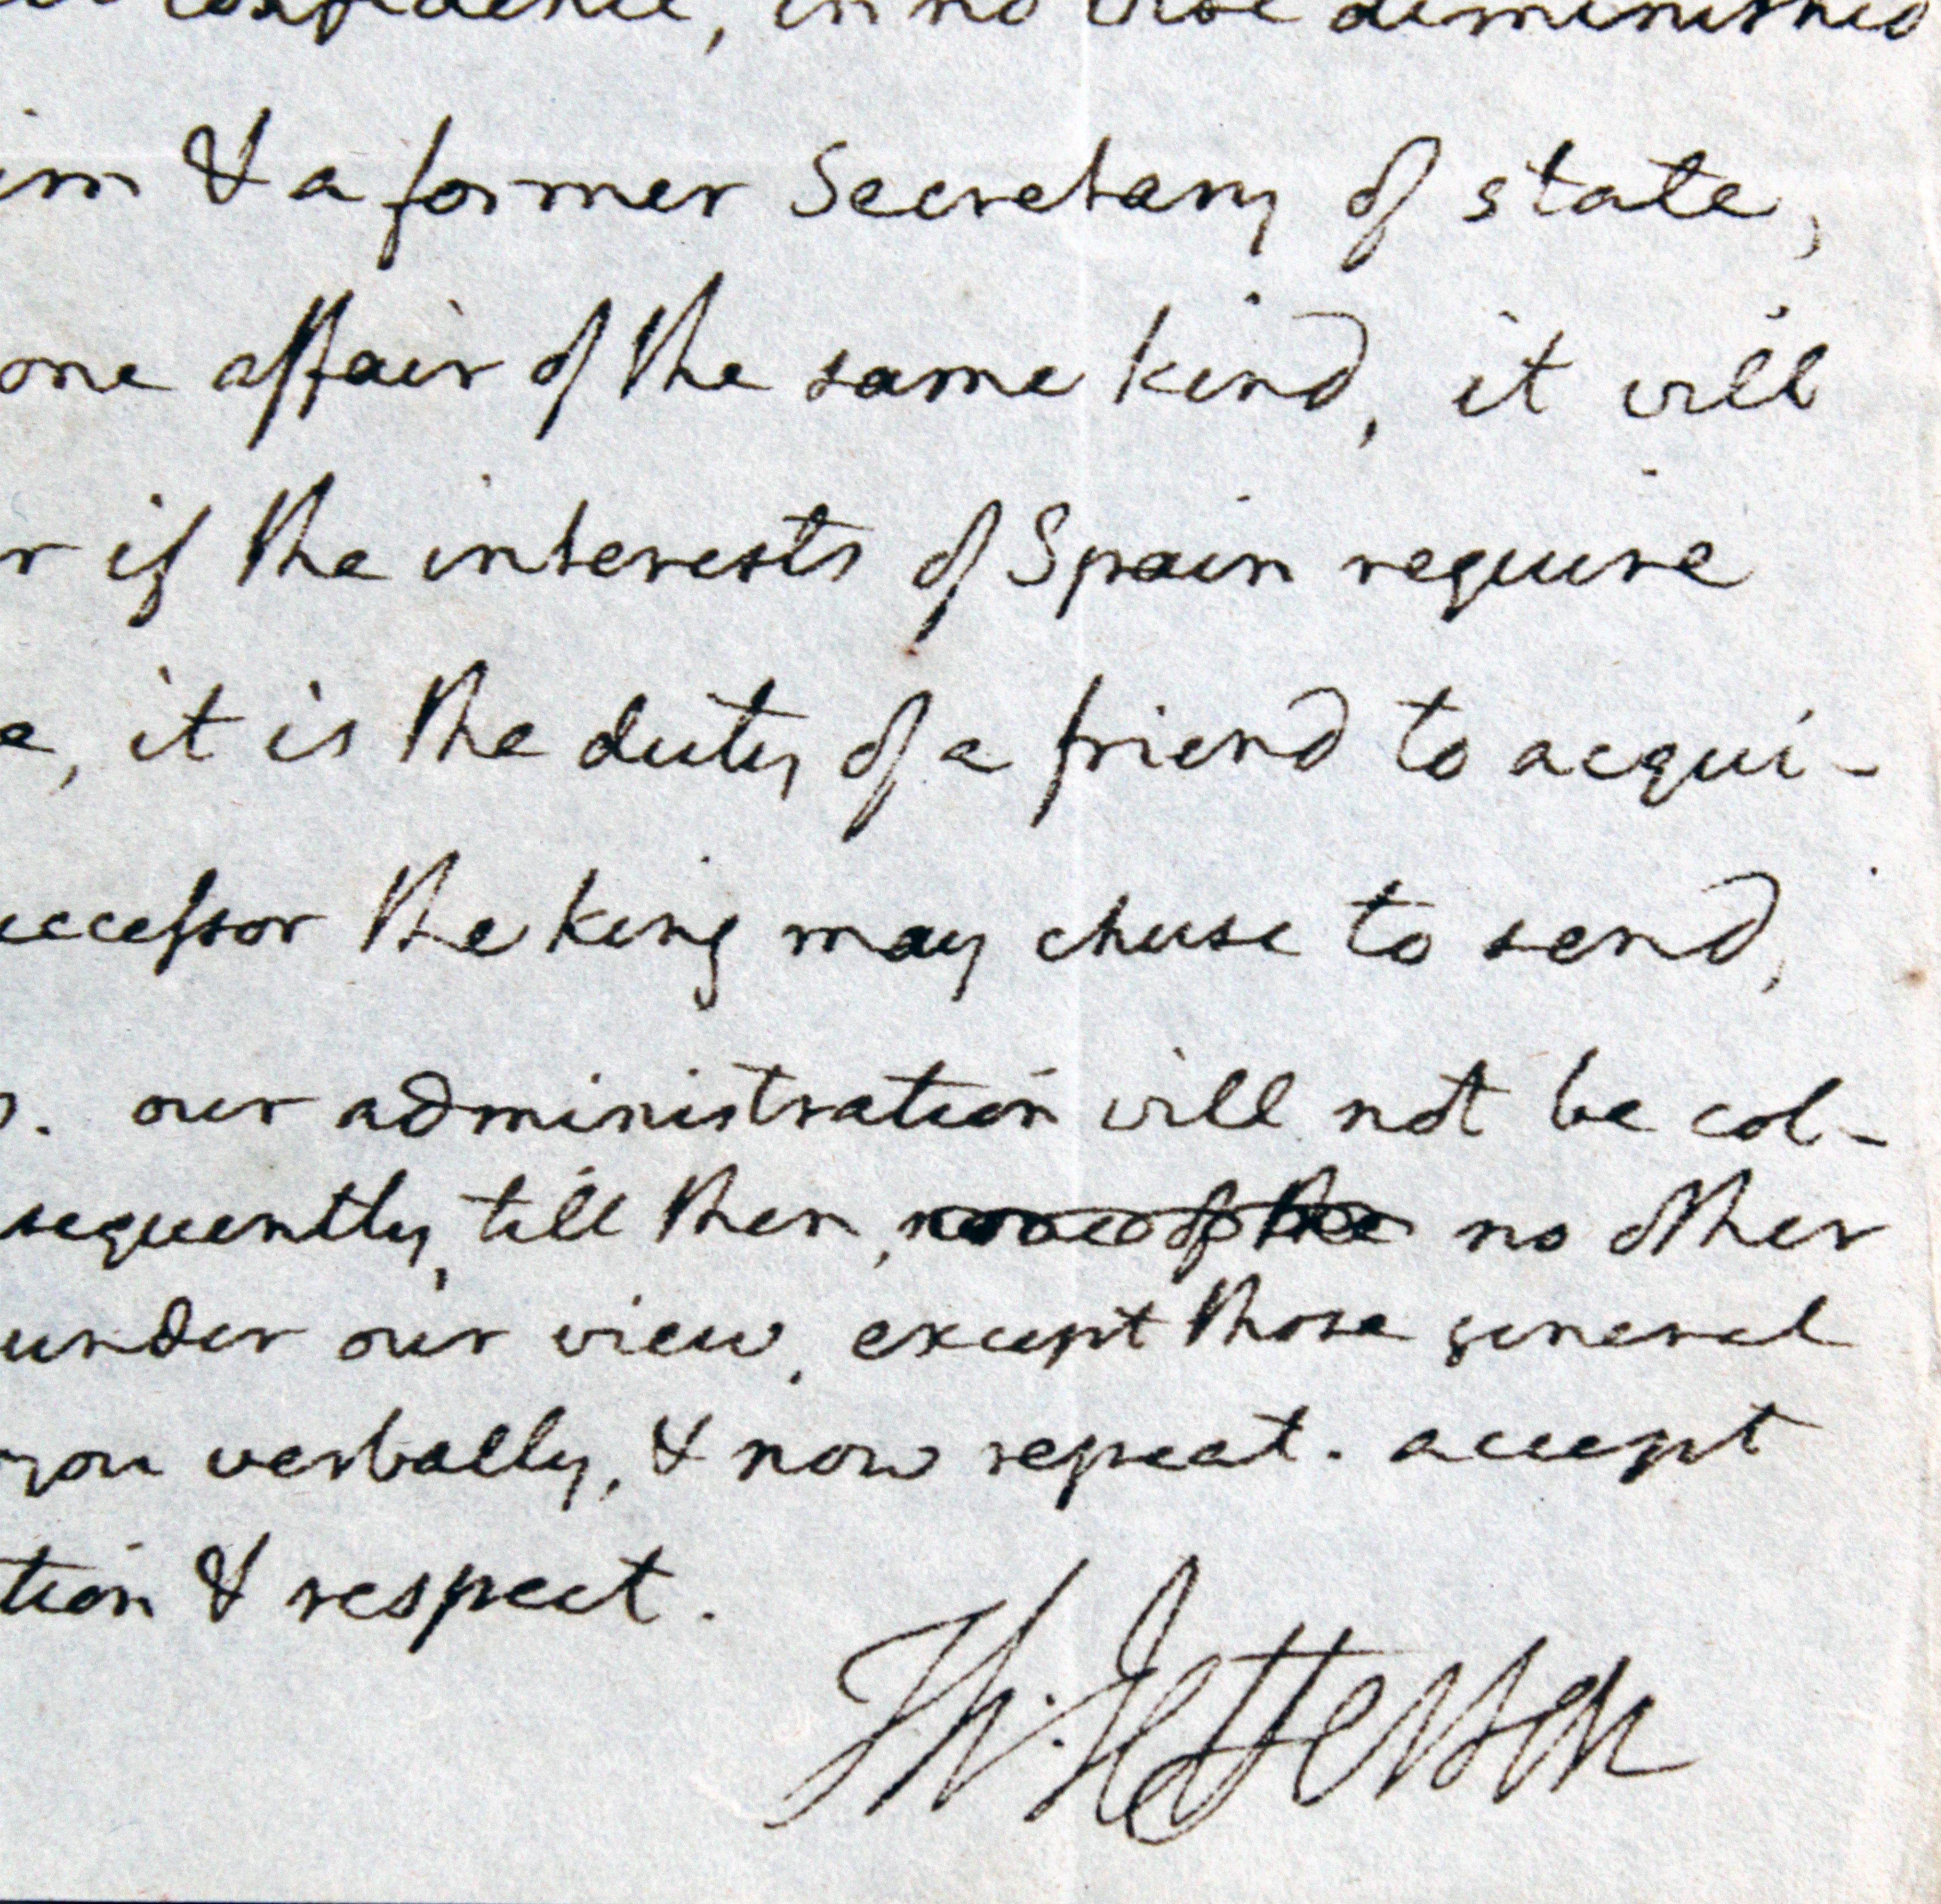 confidence, in no wise diminished
im & a former Secretary of state,
one affair of the same kind, it will
r if the interests of Spain require
e, it is the duty of a friend to acqui-
uccessor the king may chuse to send,
. our administration will not be col-
sequently, till then, none of the no other
under our view, except those general
you verbally, & now repeat. accept
tion & respect.
Th: Jefferson